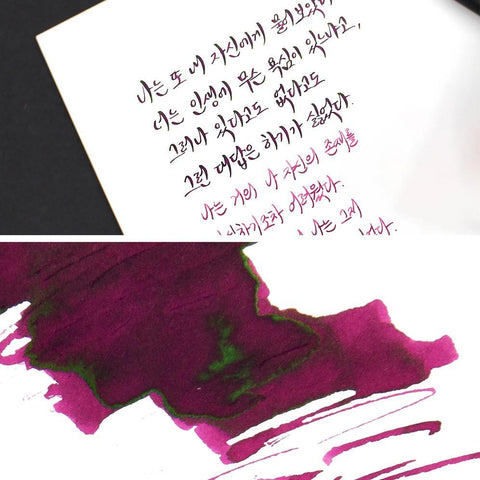 나는 또 내 자신에게 물어보았다
너는 인생에 무슨 욕심이 있느냐고,
그러나 있다고도 없다고도
그런 대답은 하기가 싫었다.
나는 거의 나 자신의 존재를
인식하기조차 어려웠다.
나는 그저